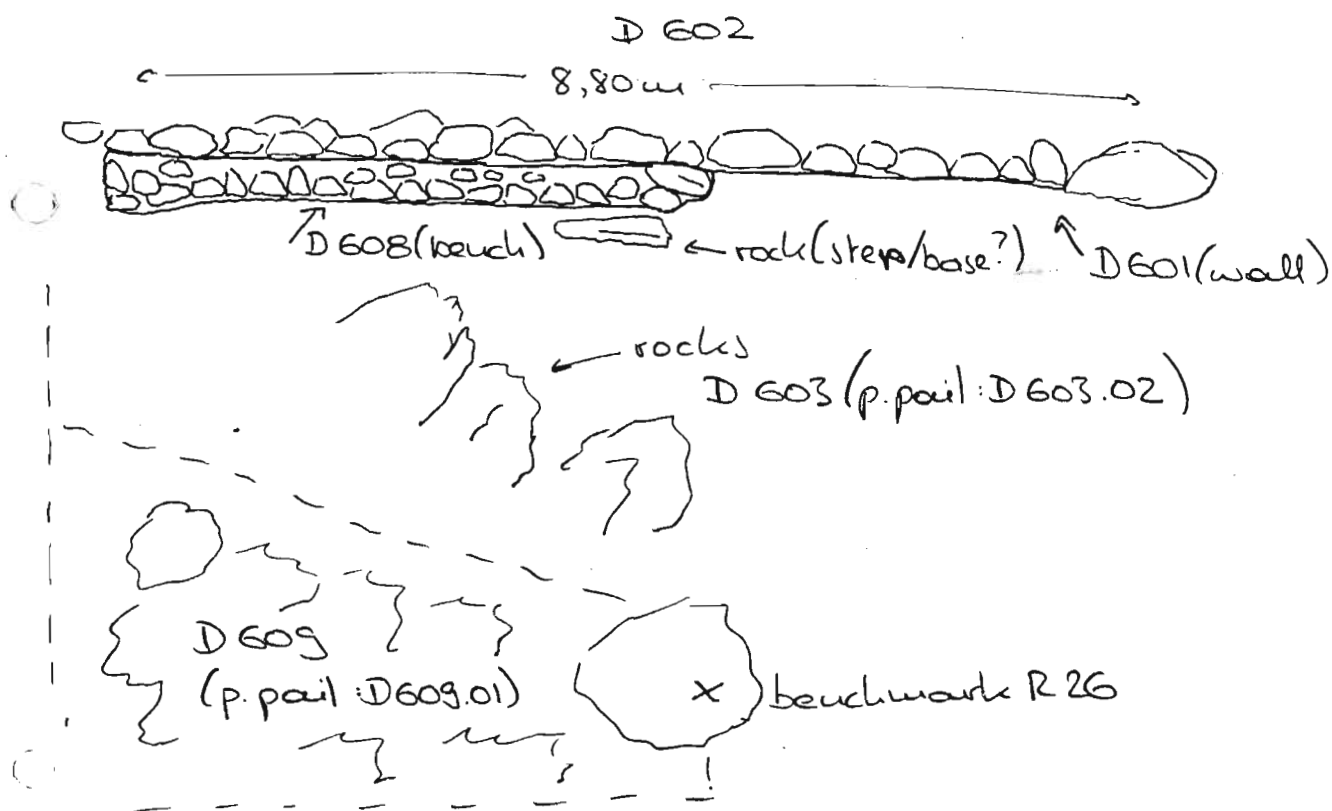 D 602
8,80 m
D 608 (bench)
rock (step/base?)
D 601 (wall)
rocks
D 603 (p. pail: D 603.02)
D 609
(p. pail: D609.01)
x benchmark R 26